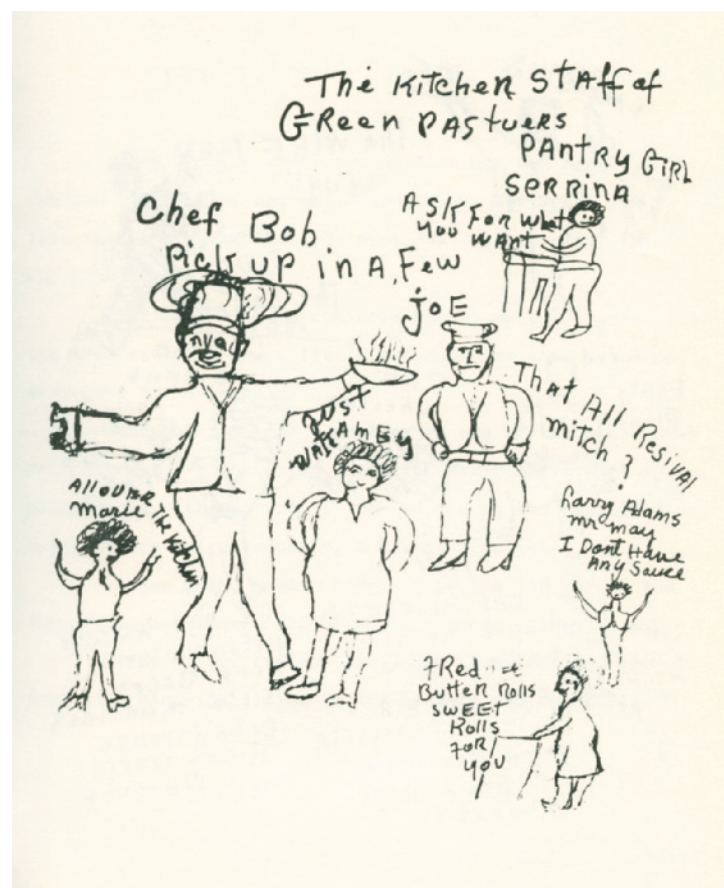 The Kitchen Staff of
Green Pastuers
Pantry Girl
Serrina
Ask For what
you want
Chef Bob
Pick up in A Few
joE
Just
Wait Amey
That All Resival
mitch?
Allover The Kitchen
Marie
Larry Adams
mr may
I Dont Have
Any Sauce
Butter Rolls
SwEEt
Rolls
For
you